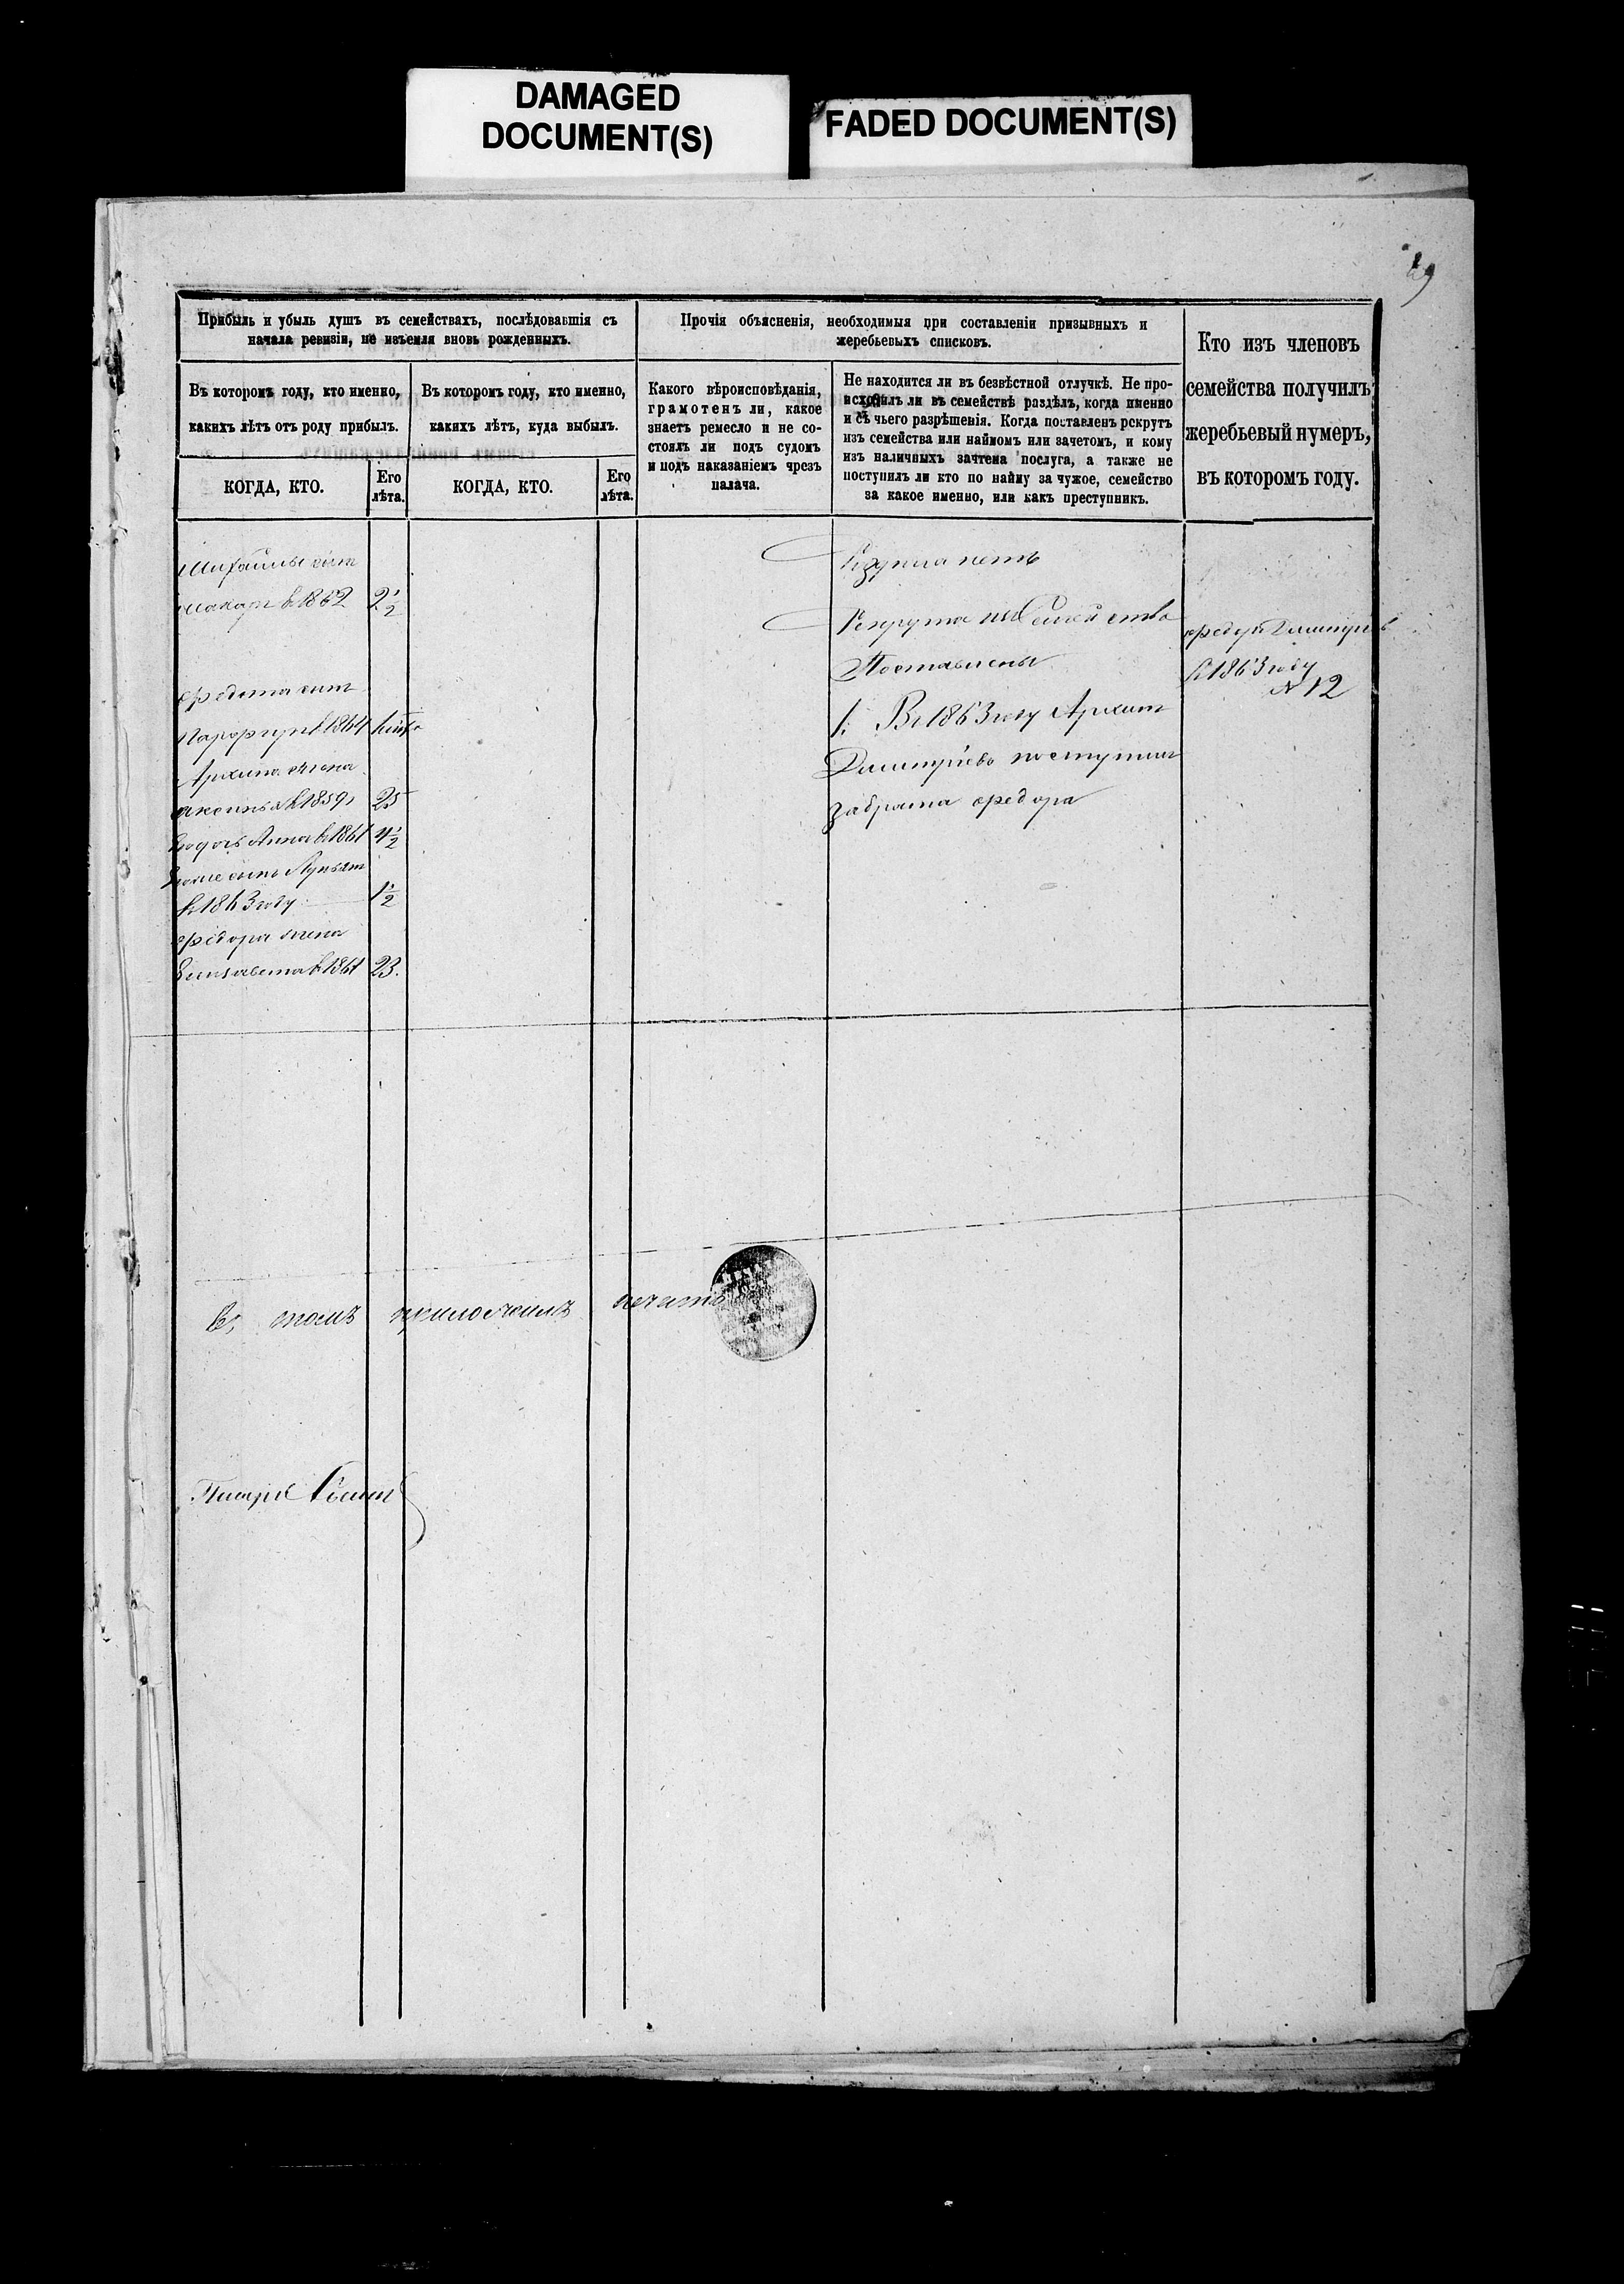 DAMAGED
DOCUMENT(S)
FADED DOCUMENT(S)
Прибыль и убыль душъ въ семействахъ, послѣдовавшія съ
начала ревизіи, не изъемля вновь рожденныхъ.
Въ которомъ году, кто именно,
какихъ лѣтъ отъ роду прибылъ.
КОГДА, КТО.
Его
лѣта.
Въ которомъ году, кто именно,
какихъ лѣтъ, куда выбылъ.
КОГДА, КТО.
Его
лѣта.
Прочія объясненія, необходимыя при составленіи призывныхъ и
жеребьевыхъ списковъ.
Какого вѣроисповѣданія,
грамотенъ ли, какое
знаетъ ремесло и не со-
стоялъ ли подъ судомъ
и подъ наказаніемъ чрезъ
палача.
Не находится ли въ безвѣстной отлучкѣ. Не про-
исходилъ ли въ семействѣ раздѣлъ, когда именно
и съ чьего разрѣшенія. Когда поставленъ рекрутъ
изъ семейства или наймомъ или зачетомъ, и кому
изъ наличныхъ зачтена послуга, а также не
поступилъ ли кто по найму за чужое, семейство
за какое именно, или какъ преступникъ.
Кто изъ членовъ
семейства получилъ
жеребьевый нумеръ,
въ которомъ году.
Михайлы сынъ
Макаръ в 1862 2 1/2
сынъ
в 1864
Архипа жена
Аксинья в 1859 25
Анна в 1861 4 1/2
сынъ
в 1863 году 1 1/2
Федора жена
Елизавета в 1861 23.
нетъ
Рекрута Семейства
Поставлены
1. Въ 1863 году Архипъ
Дмитріевъ поступилъ
за брата Федора
Федоръ Дмитріевъ
в 1863 году
№ 12
въ томъ приложеніемъ печати
Писарь